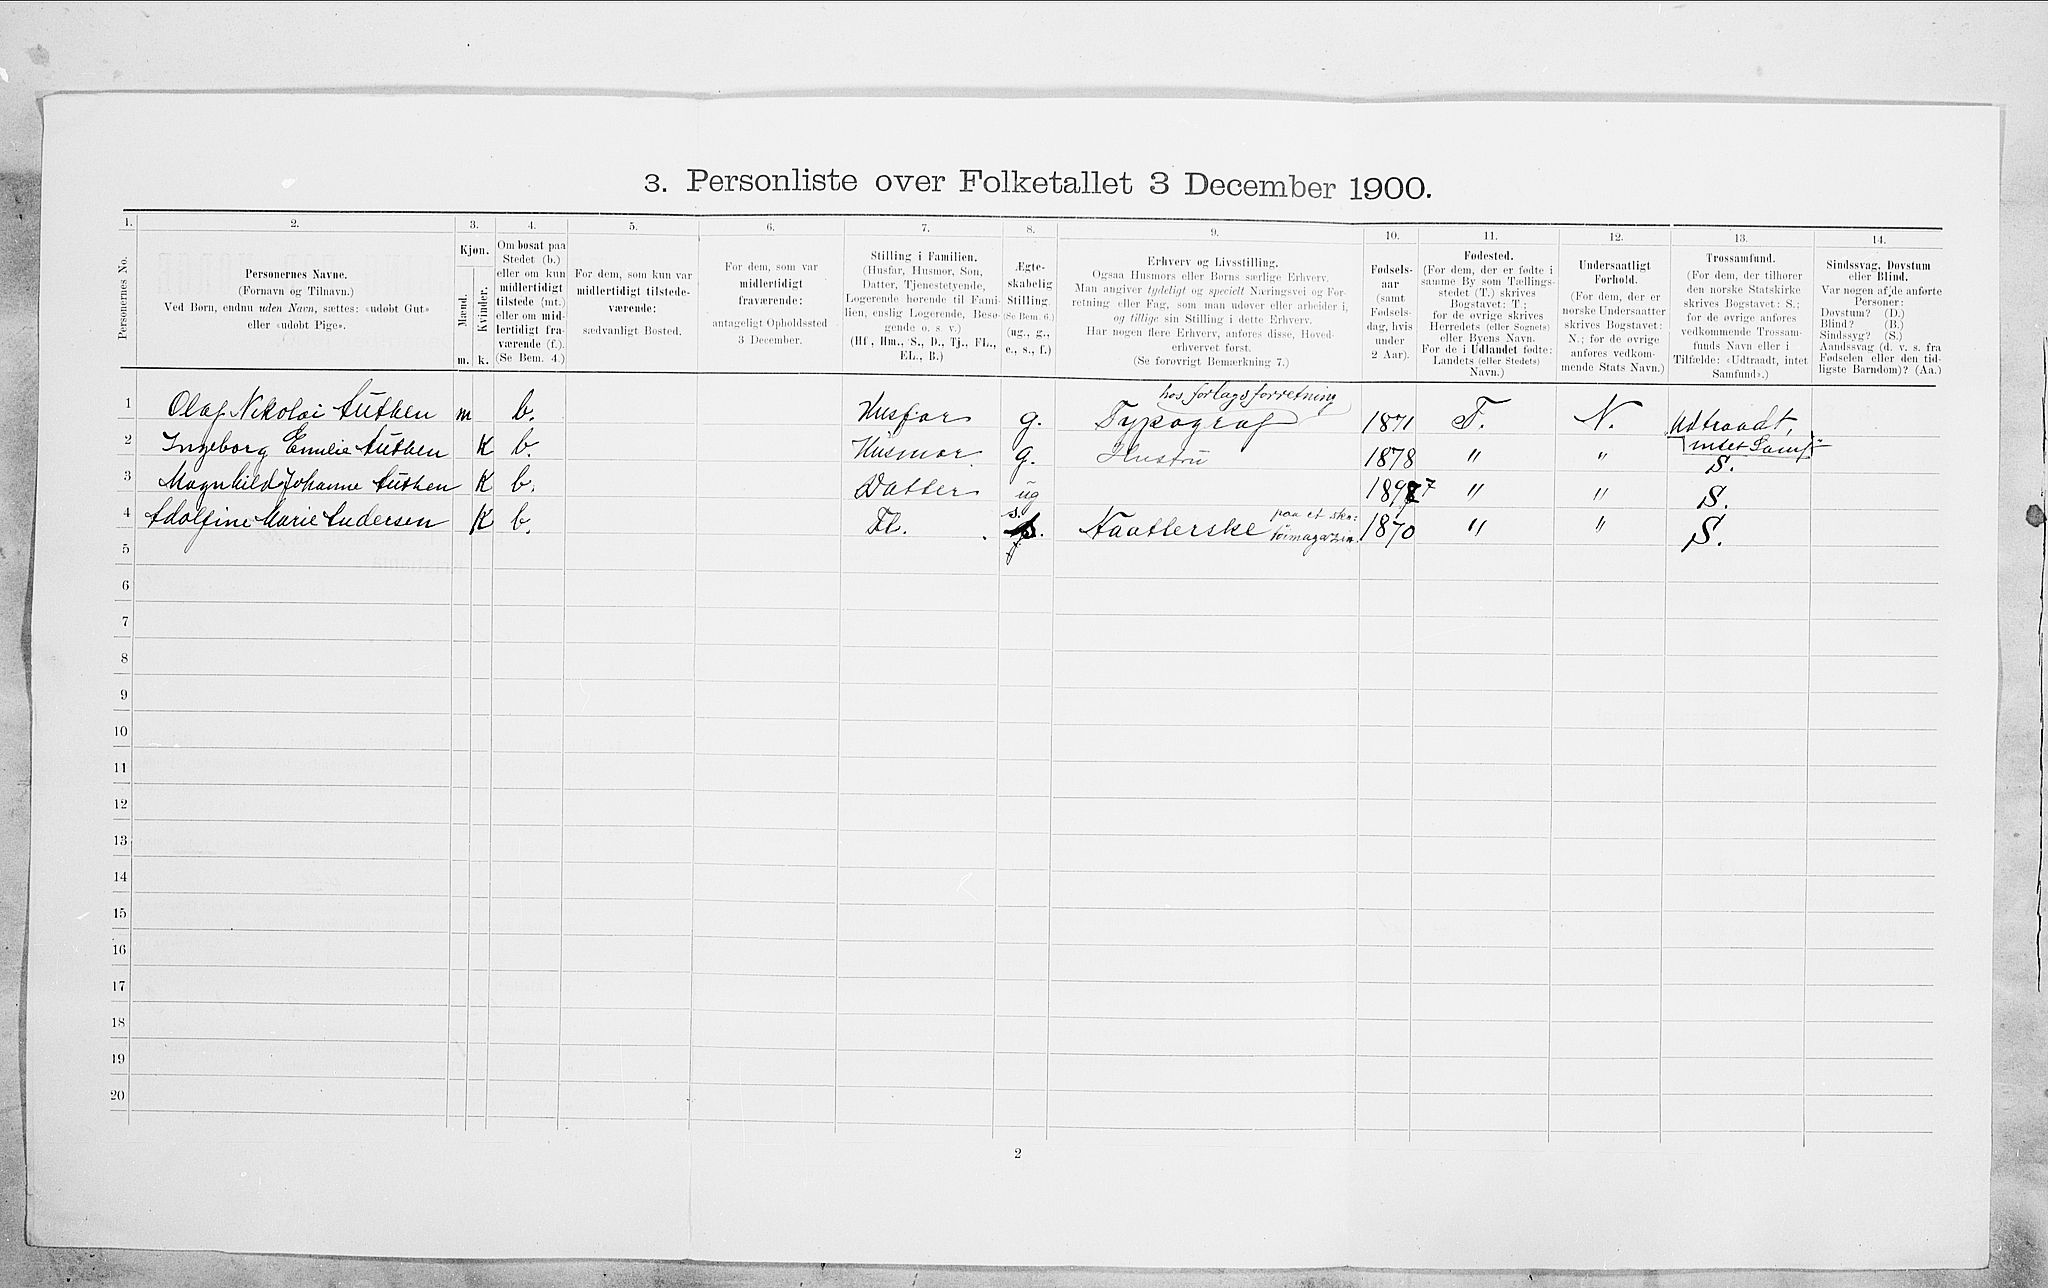 3. Personliste over Folketallet 3 December 1900.
1. 2. 3. 4. 5. 6. 7. 8. 9. 10. 11. 12. 13. 14.
Personernes No.
Personernes Navne.
(Fornavn og Tilnavn.)
Ved Børn, endnu uden Navn, sættes: «udøbt Gut»
eller «udøbt Pige».
Kjøn.
Mænd.
Kvinder.
m. k.
Om bosat paa
Stedet (b.)
eller om kun
midlertidigt
tilstede (mt.)
eller om mid-
lertidigt fra-
værende (f.).
(Se Bem. 4.)
For dem, som kun var
midlertidigt tilstede-
værende:
sædvanligt Bosted.
For dem, som var
midlertidigt
fraværende:
antageligt Opholdssted
3 December.
Stilling i Familien.
(Husfar, Husmor, Søn,
Datter, Tjenestetyende,
Logerende hørende til Fami-
lien, enslig Logerende, Besø-
gende o. s. v.)
(Hf., Hm., S., D., Tj., FL.,
EL., B.)
Ægte-
skabelig
Stilling.
(Se Bem. 6.)
(ug., g.,
e., s., f.)
Erhverv og Livsstilling.
Ogsaa Husmors eller Børns særlige Erhverv.
Man angiver tydeligt og specielt Næringsvei og For-
retning eller Fag, som man udøver eller arbeider i,
og tillige sin Stilling i dette Erhverv.
Har nogen flere Erhverv, anføres disse, Hoved-
erhvervet først.
(Se forøvrigt Bemærkning 7.)
Fødsels-
aar
(samt
Fødsels-
dag, hvis
under
2 Aar).
Fødested.
(For dem, der er fødte i
samme By som Tællings-
stedet (T.) skrives
Bogstavet: T.;
for de øvrige skrives
Herredets (eller Sognets)
eller Byens Navn.
For de i Udlandet fødte:
Landets (eller Stedets)
Navn.)
Undersaatligt
Forhold.
(For dem, der er
norske Undersaatter
skrives Bogstavet:
N.; for de øvrige
anføres vedkom-
mende Stats Navn.)
Trossamfund.
(For dem, der tilhører
den norske Statskirke
skrives Bogstavet: S.;
for de øvrige anføres
vedkommende Trossam-
funds Navn eller i
Tilfælde: «Udtraadt, intet
Samfund».)
Sindssvag, Døvstum
eller Blind.
Var nogen af de anførte
Personer:
Døvstum? (D.)
Blind? (B.)
Sindssyg? (S.)
Aandssvag (d. v. s. fra
Fødselen eller den tid-
ligste Barndom)? (Aa.)
hos forlagsforretning
1 Olaf Nikolai Authen m b. Husfar g. Typograf 1871 T. N. Udtraadt,
intet Samf
2 Ingeborg Emilie Authen K b. Husmor g. Hustru 1878 " " S.
3 Magnhild Johanne Authen K b. Datter ug 1897 " " S.
4 Adolfine Marie Andersen K b. FL. s. Naatlerske paa et sko- 1870 " " S.
tøimagasin.
5
6
7
8
9
10
11
12
13
14
15
16
17
18
19
20
2